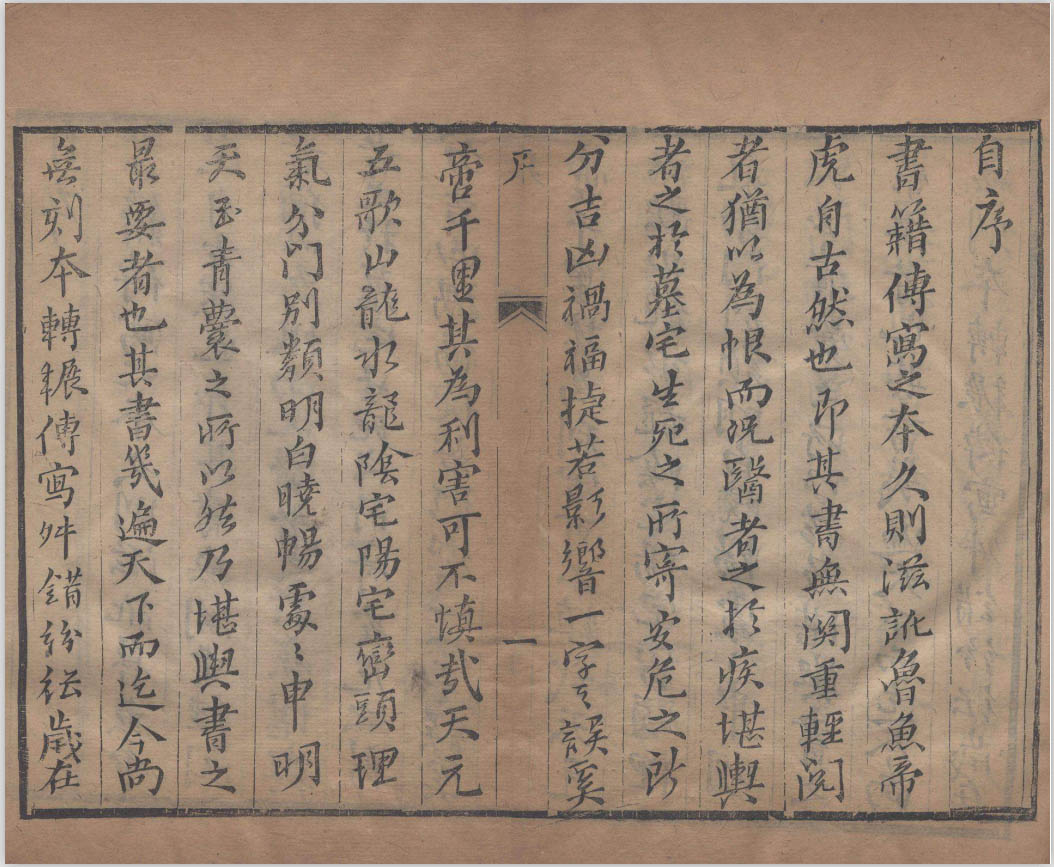 自序
書籍傳寫之本久則滋訛魯魚帝
虎自古然也即其書無関重輕閲
者猶以為恨而況醫者之於疾堪輿
者之於墓宅生死之所寄安危之所
分吉凶禍福捷若影響一字之誤奚
序
一
啻千里其為利害可不慎哉天元
五歌山龍水龍陰宅陽宅巒頭理
氣分門別類明白曉暢處〻申明
天玉青囊之所以然乃堪輿書之
最要者也其書幾遍天下而迄今尚
無刻本轉輾傳寫舛錯紛紜歲在